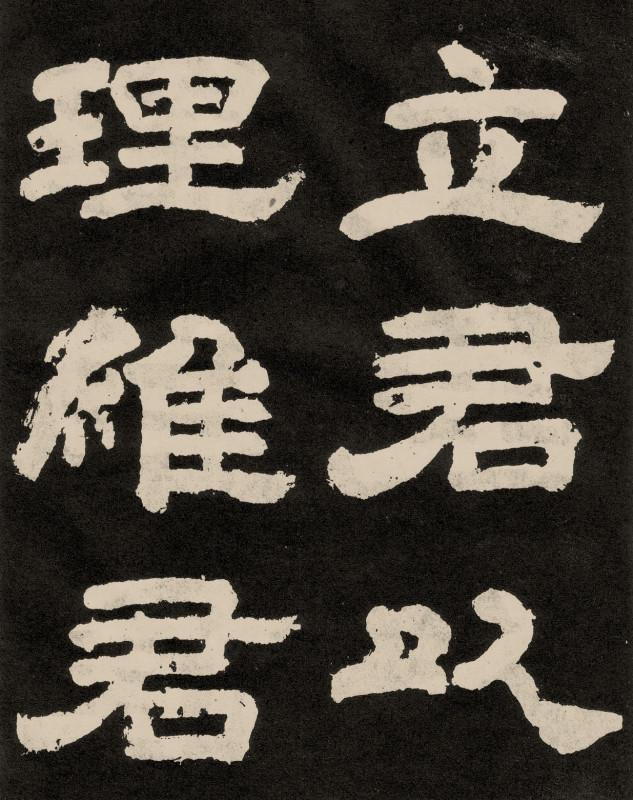 立君以
理維君